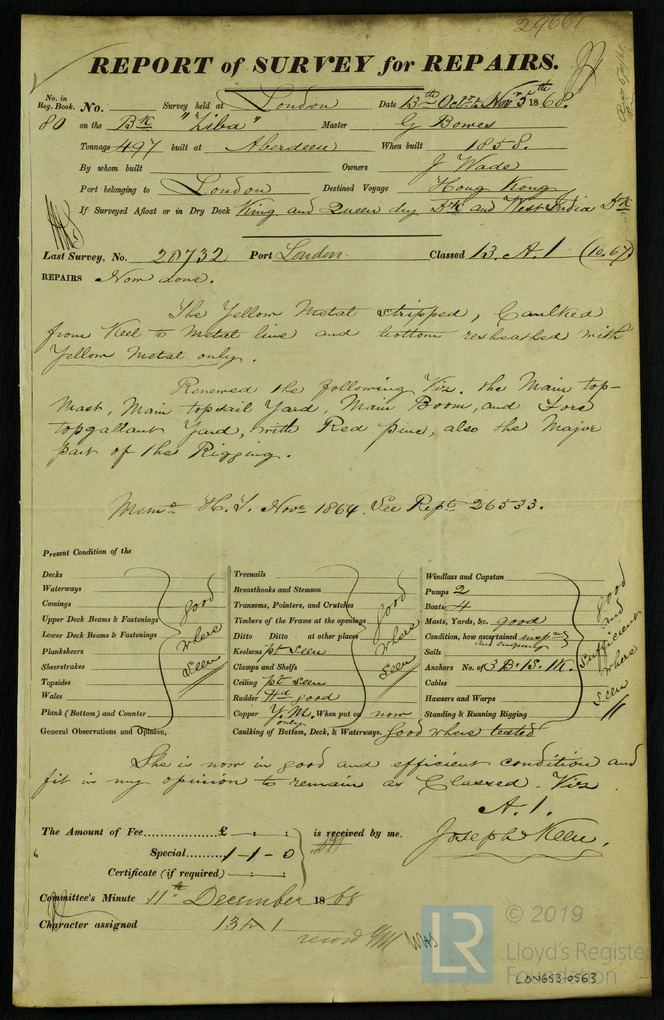 29661
REPORT of SURVEY for REPAIRS.
No. in Reg. Book. No. Survey held at London Date 13th Octr & Novr 5th 1868.
80 on the Bk "Ziba" Master G Bowes
Tonnage 497 built at Aberdeen When built 1858.
By whom built Owners J Wade
Port belonging to London Destined Voyage Hong Kong
If Surveyed Afloat or in Dry Dock King and Queen dry Dk and West India Dk
Last Survey, No. 28732 Port London. Classed 13. A.1 (10.67)
REPAIRS Now done.
The Yellow Metal stripped, Caulked
from Keel to Metal line and bottom resheathed with
Yellow Metal only.
Renewed the following Viz. the Main top-
Mast, Main topsail Yard, Main Boom, and Fore
topgallant Yard, with Red pine, also the Major
part of the Rigging.
Memo H.T. Novr 1864. See Rept 26533.
Present Condition of the
Decks
Waterways
Comings
Upper Deck Beams & Fastenings
Lower Deck Beams & Fastenings
Planksheers
Sheerstrakes
Topsides
Wales
Plank (Bottom) and Counter
good where seen
Treenails
Breasthooks and Stemson
Transoms, Pointers, and Crutches
Timbers of the Frame at the openings
Ditto Ditto at other places
Keelsons pt seen
Clamps and Shelfs
Ceiling pt seen
Rudder Hd good
Copper Y.M. only When put on now
good where seen
Windlass and Capstan
Pumps 2
Boats 4
Masts, Yards, &c. good
Condition, how ascertained and enquiry
Sails
Anchors No. of 3 B. 1 S. 1 K.
Cables
Hawsers and Warps
Standing & Running Rigging
good and sufficient where seen
General Observations and Opinion, Caulking of Bottom, Deck, & Waterways. Good where tested
She is now in good and efficient condition and
fit in my opinion to remain as Classed. Viz.
A.1.
The Amount of Fee £ is received by me.
Special 1-1-0
Joseph Keen.
Certificate (if required)
Committee's Minute 11th December 1868
Character assigned 13 A 1
record YM
© 2019
LR
Lloyd's Register
Foundation
LON653-0563